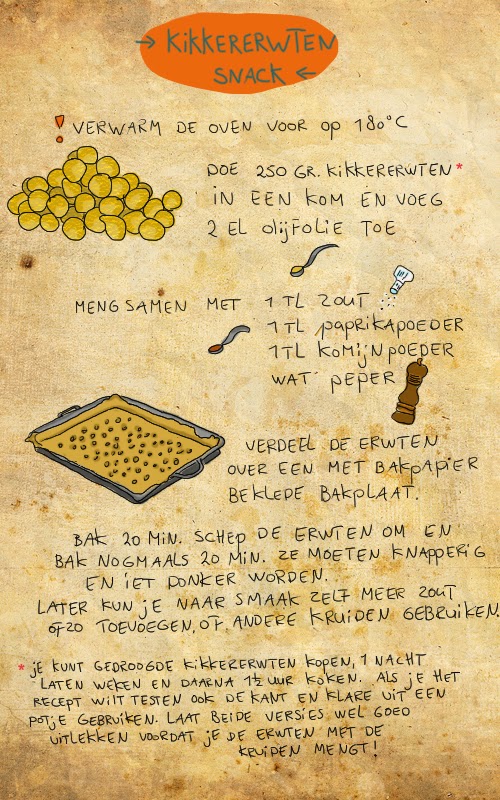 → KIKKERERWTEN
SNACK ←
! VERWARM DE OVEN VOOR OP 180°C
DOE 250 GR. KIKKERERWTEN*
IN EEN KOM EN VOEG
2 EL OLIJFOLIE TOE
MENG SAMEN MET 1 TL ZOUT
1 TL PAPRIKAPOEDER
1 TL KOMIJNPOEDER
WAT PEPER
VERDEEL DE ERWTEN
OVER EEN MET BAKPAPIER
BEKLEDE BAKPLAAT.
BAK 20 MIN. SCHEP DE ERWTEN OM EN
BAK NOGMAALS 20 MIN. ZE MOETEN KNAPPERIG
EN IET DONKER WORDEN.
LATER KUN JE NAAR SMAAK ZELF MEER ZOUT
OFZO TOEVOEGEN, OF ANDERE KRUIDEN GEBRUIKEN.
* JE KUNT GEDROOGDE KIKKERERWTEN KOPEN, 1 NACHT
LATEN WEKEN EN DAARNA 1½ UUR KOKEN. ALS JE HET
RECEPT WILT TESTEN OOK DE KANT EN KLARE UIT EEN
POTJE GEBRUIKEN. LAAT BEIDE VERSIES WEL GOED
UITLEKKEN VOORDAT JE DE ERWTEN MET DE
KRUIDEN MENGT!